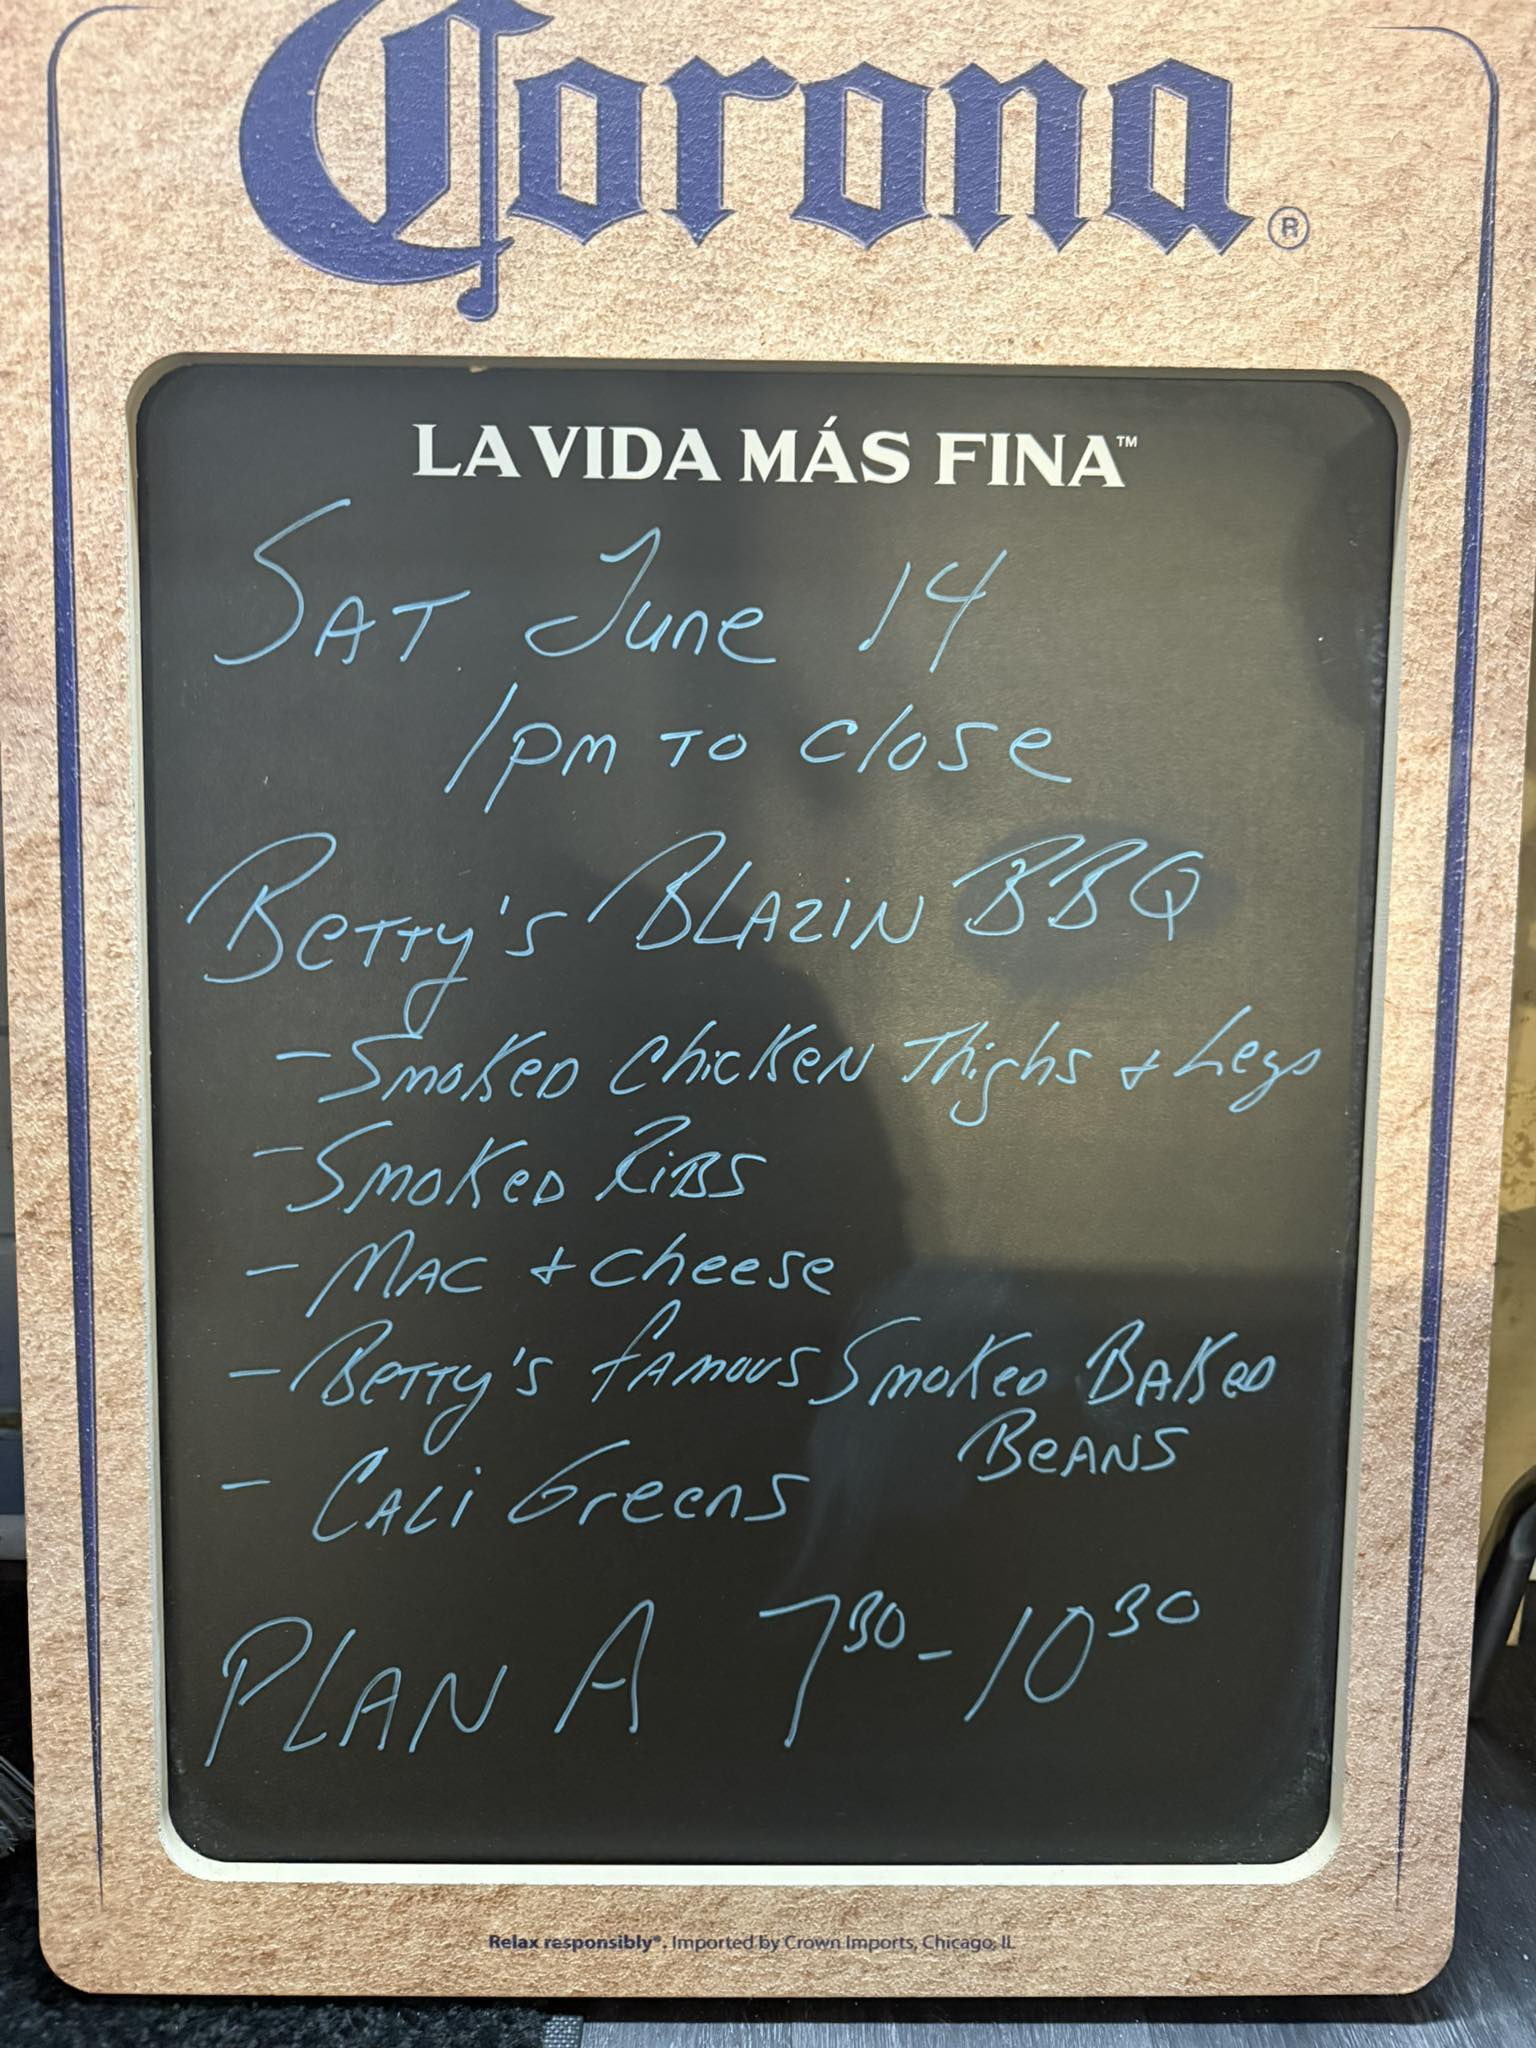 Corona®
LA VIDA MÁS FINA™
SAT. June 14
1pm TO close
BeTTy's BLAZiN BBQ
- SMOKeD ChicKeN Thighs + Legs
- SMOKeD RiBS
- MAC + Cheese
- BeTTy's fAMOUS SMOKeD BAKeD
BeANS
- CALi Greens
PLAN A 730 - 1030
Relax responsibly®. Imported by Crown Imports, Chicago, IL